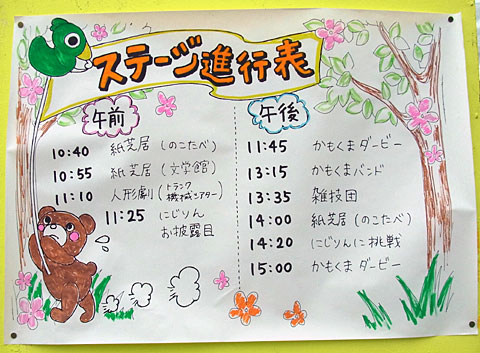 ステージ進行表
午前
10:40 紙芝居(のこたべ)
10:55 紙芝居(文学館)
11:10 人形劇(トランク機械シアター)
11:25 にじりん
お披露目
午後
11:45 かもくまダービー
13:15 かもくまバンド
13:35 雑技団
14:00 紙芝居(のこたべ)
14:20 にじりんに挑戦
15:00 かもくまダービー